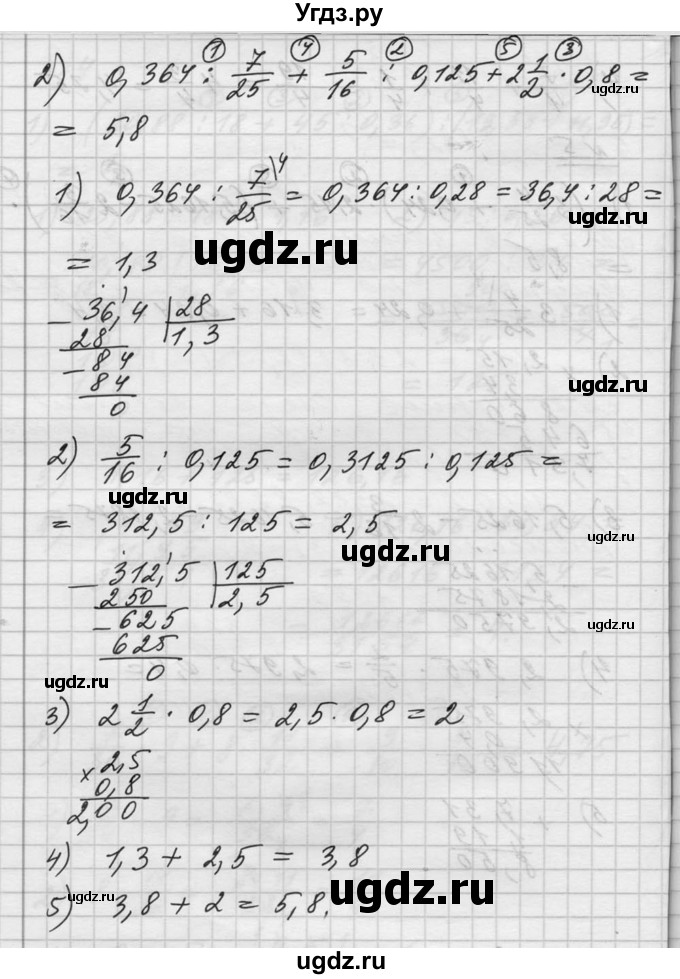 Угдз.ру
① ④ ② ⑤ ③
2) 0,364 : 7/25 + 5/16 : 0,125 + 2 1/2 · 0,8 =
ugdz.ru
ugdz.ru
= 5,8
1) 0,364 : 7/25 \4 = 0,364 : 0,28 = 36,4 : 28 =
ugdz.ru
ugdz.ru
= 1,3
36,4 | 28
28 1,3
84
84
0
ugdz.ru
ugdz.ru
2) 5/16 : 0,125 = 0,3125 : 0,125 =
ugdz.ru
= 312,5 : 125 = 2,5
ugdz.ru
ugdz.ru
312,5 | 125
250 2,5
625
625
0
ugdz.ru
ugdz.ru
3) 2 1/2 · 0,8 = 2,5 · 0,8 = 2
ugdz.ru
× 2,5
0,8
2,00
ugdz.ru
4) 1,3 + 2,5 = 3,8
ugdz.ru
5) 3,8 + 2 = 5,8.
ugdz.ru
ugdz.ru